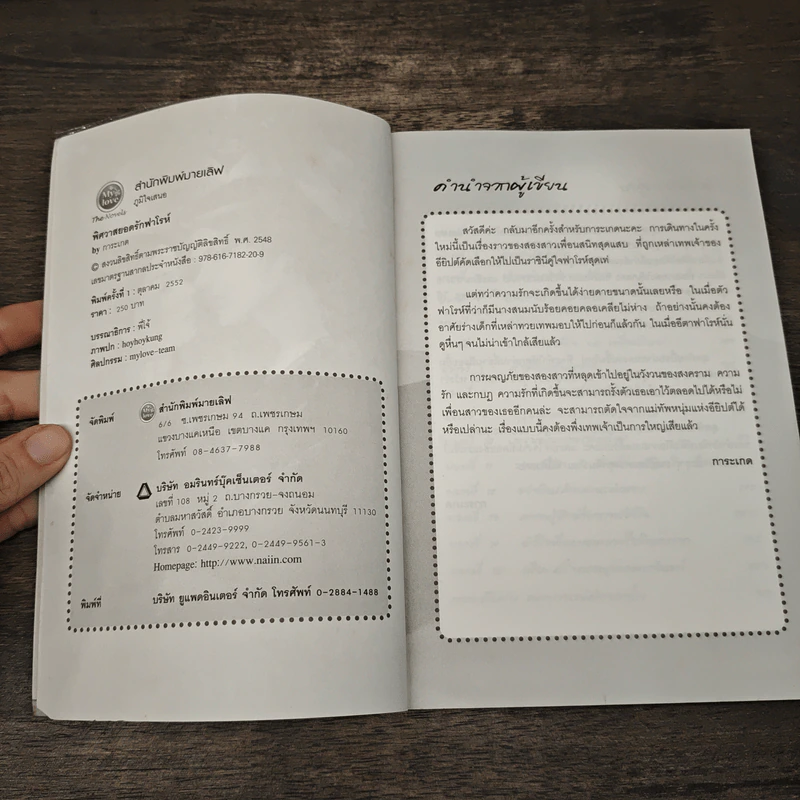 My love
The Novels
สำนักพิมพ์มายเลิฟ
ภูมิใจเสนอ
พิศวาสยอดรักฟาโรห์
by การะเกด
© สงวนลิขสิทธิ์ตามพระราชบัญญัติลิขสิทธิ์ พ.ศ. 2548
เลขมาตรฐานสากลประจำหนังสือ : 978-616-7182-20-9
พิมพ์ครั้งที่ 1 : ตุลาคม 2552
ราคา : 250 บาท
บรรณาธิการ : พี่โจ้
ภาพปก : hoyhoykung
ศิลปกรรม : mylove-team
จัดพิมพ์ สำนักพิมพ์มายเลิฟ
6/6 ซ.เพชรเกษม 94 ถ.เพชรเกษม
แขวงบางแคเหนือ เขตบางแค กรุงเทพฯ 10160
โทรศัพท์ 08-4637-7988
จัดจำหน่าย บริษัท อมรินทร์บุ๊คเซ็นเตอร์ จำกัด
เลขที่ 108 หมู่ 2 ถ.บางกรวย-จงถนอม
ตำบลมหาสวัสดิ์ อำเภอบางกรวย จังหวัดนนทบุรี 11130
โทรศัพท์ 0-2423-9999
โทรสาร 0-2449-9222, 0-2449-9561-3
Homepage: http://www.naiin.com
พิมพ์ที่ บริษัท ยูแพดอินเตอร์ จำกัด โทรศัพท์ 0-2884-1488
คำนำจากผู้เขียน
สวัสดีค่ะ กลับมาอีกครั้งสำหรับการะเกดนะคะ การเดินทางในครั้ง
ใหม่นี้เป็นเรื่องราวของสองสาวเพื่อนสนิทสุดแสบ ที่ถูกเหล่าเทพเจ้าของ
อียิปต์คัดเลือกให้ไปเป็นราชินีคู่ใจฟาโรห์สุดเท่
แต่ทว่าความรักจะเกิดขึ้นได้ง่ายดายขนาดนั้นเลยหรือ ในเมื่อตัว
ฟาโรห์ที่ว่าก็มีนางสนมนับร้อยคอยคลอเคลียไม่ห่าง ถ้าอย่างนั้นคงต้อง
อาศัยร่างเด็กที่เหล่าทวยเทพมอบให้ไปก่อนก็แล้วกัน ในเมื่ออีตาฟาโรห์นั่น
ดูหื่นๆ จนไม่น่าเข้าใกล้เสียแล้ว
การผจญภัยของสองสาวที่หลุดเข้าไปอยู่ในวังวนของสงคราม ความ
รัก และกบฏ ความรักที่เกิดขึ้นจะสามารถรั้งตัวเธอเอาไว้ตลอดไปได้หรือไม่
เพื่อนสาวของเธออีกคนล่ะ จะสามารถตัดใจจากแม่ทัพหนุ่มแห่งอียิปต์ได้
หรือเปล่านะ เรื่องแบบนี้คงต้องพึ่งเทพเจ้าเป็นการใหญ่เสียแล้ว
การะเกด